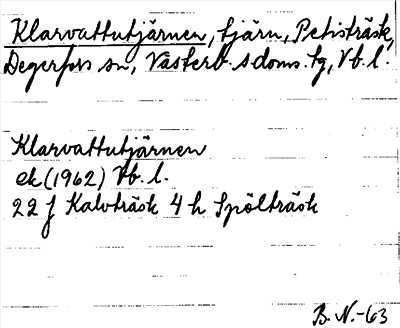 Klarvattutjärnen, tjärn, Petisträsk,
Degerfors sn, Västerb. s doms. tg, Vb. l.
Klarvattutjärnen
ek (1962) Vb. l.
22 J Kalvträsk 4 h Spölträsk
B. N.-63